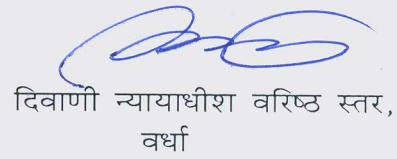 दिवाणी न्यायाधीश वरिष्ठ स्तर,
वर्धा